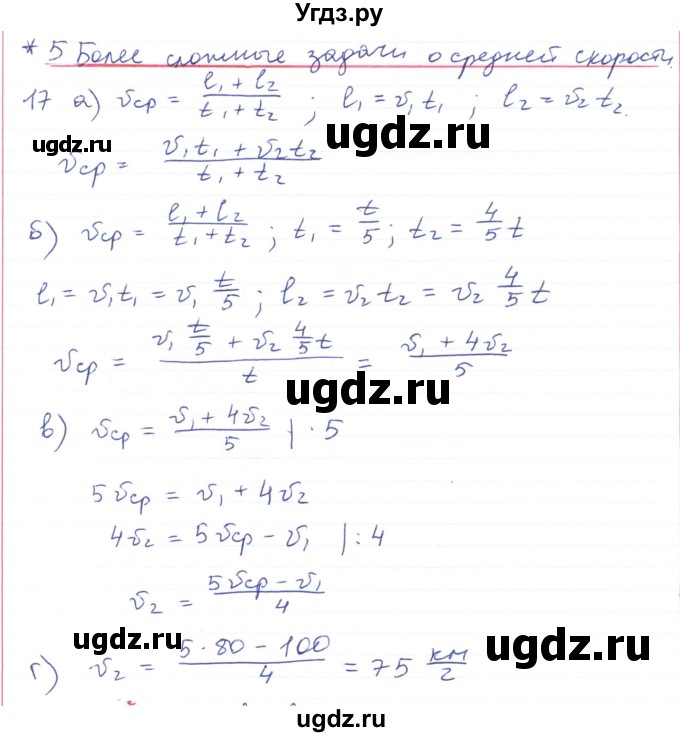 Угдз.ру
* 5 Более сложные задачи о средней скорости.
17 а) vср = (l₁ + l₂)/(t₁ + t₂) ; l₁ = v₁t₁ ; l₂ = v₂t₂.
ugdz.ru
ugdz.ru
vср = (v₁t₁ + v₂t₂)/(t₁ + t₂)
б) vср = (l₁ + l₂)/(t₁ + t₂) ; t₁ = t/5 ; t₂ = 4/5 t
l₁ = v₁t₁ = v₁ t/5 ; l₂ = v₂t₂ = v₂ 4/5 t
vср = (v₁ t/5 + v₂ 4/5 t)/t = (v₁ + 4v₂)/5
ugdz.ru
в) vср = (v₁ + 4v₂)/5 | · 5
5vср = v₁ + 4v₂
4v₂ = 5vср − v₁ | : 4
v₂ = (5vср − v₁)/4
ugdz.ru
ugdz.ru
г) v₂ = (5 · 80 − 100)/4 = 75 км/г
ugdz.ru